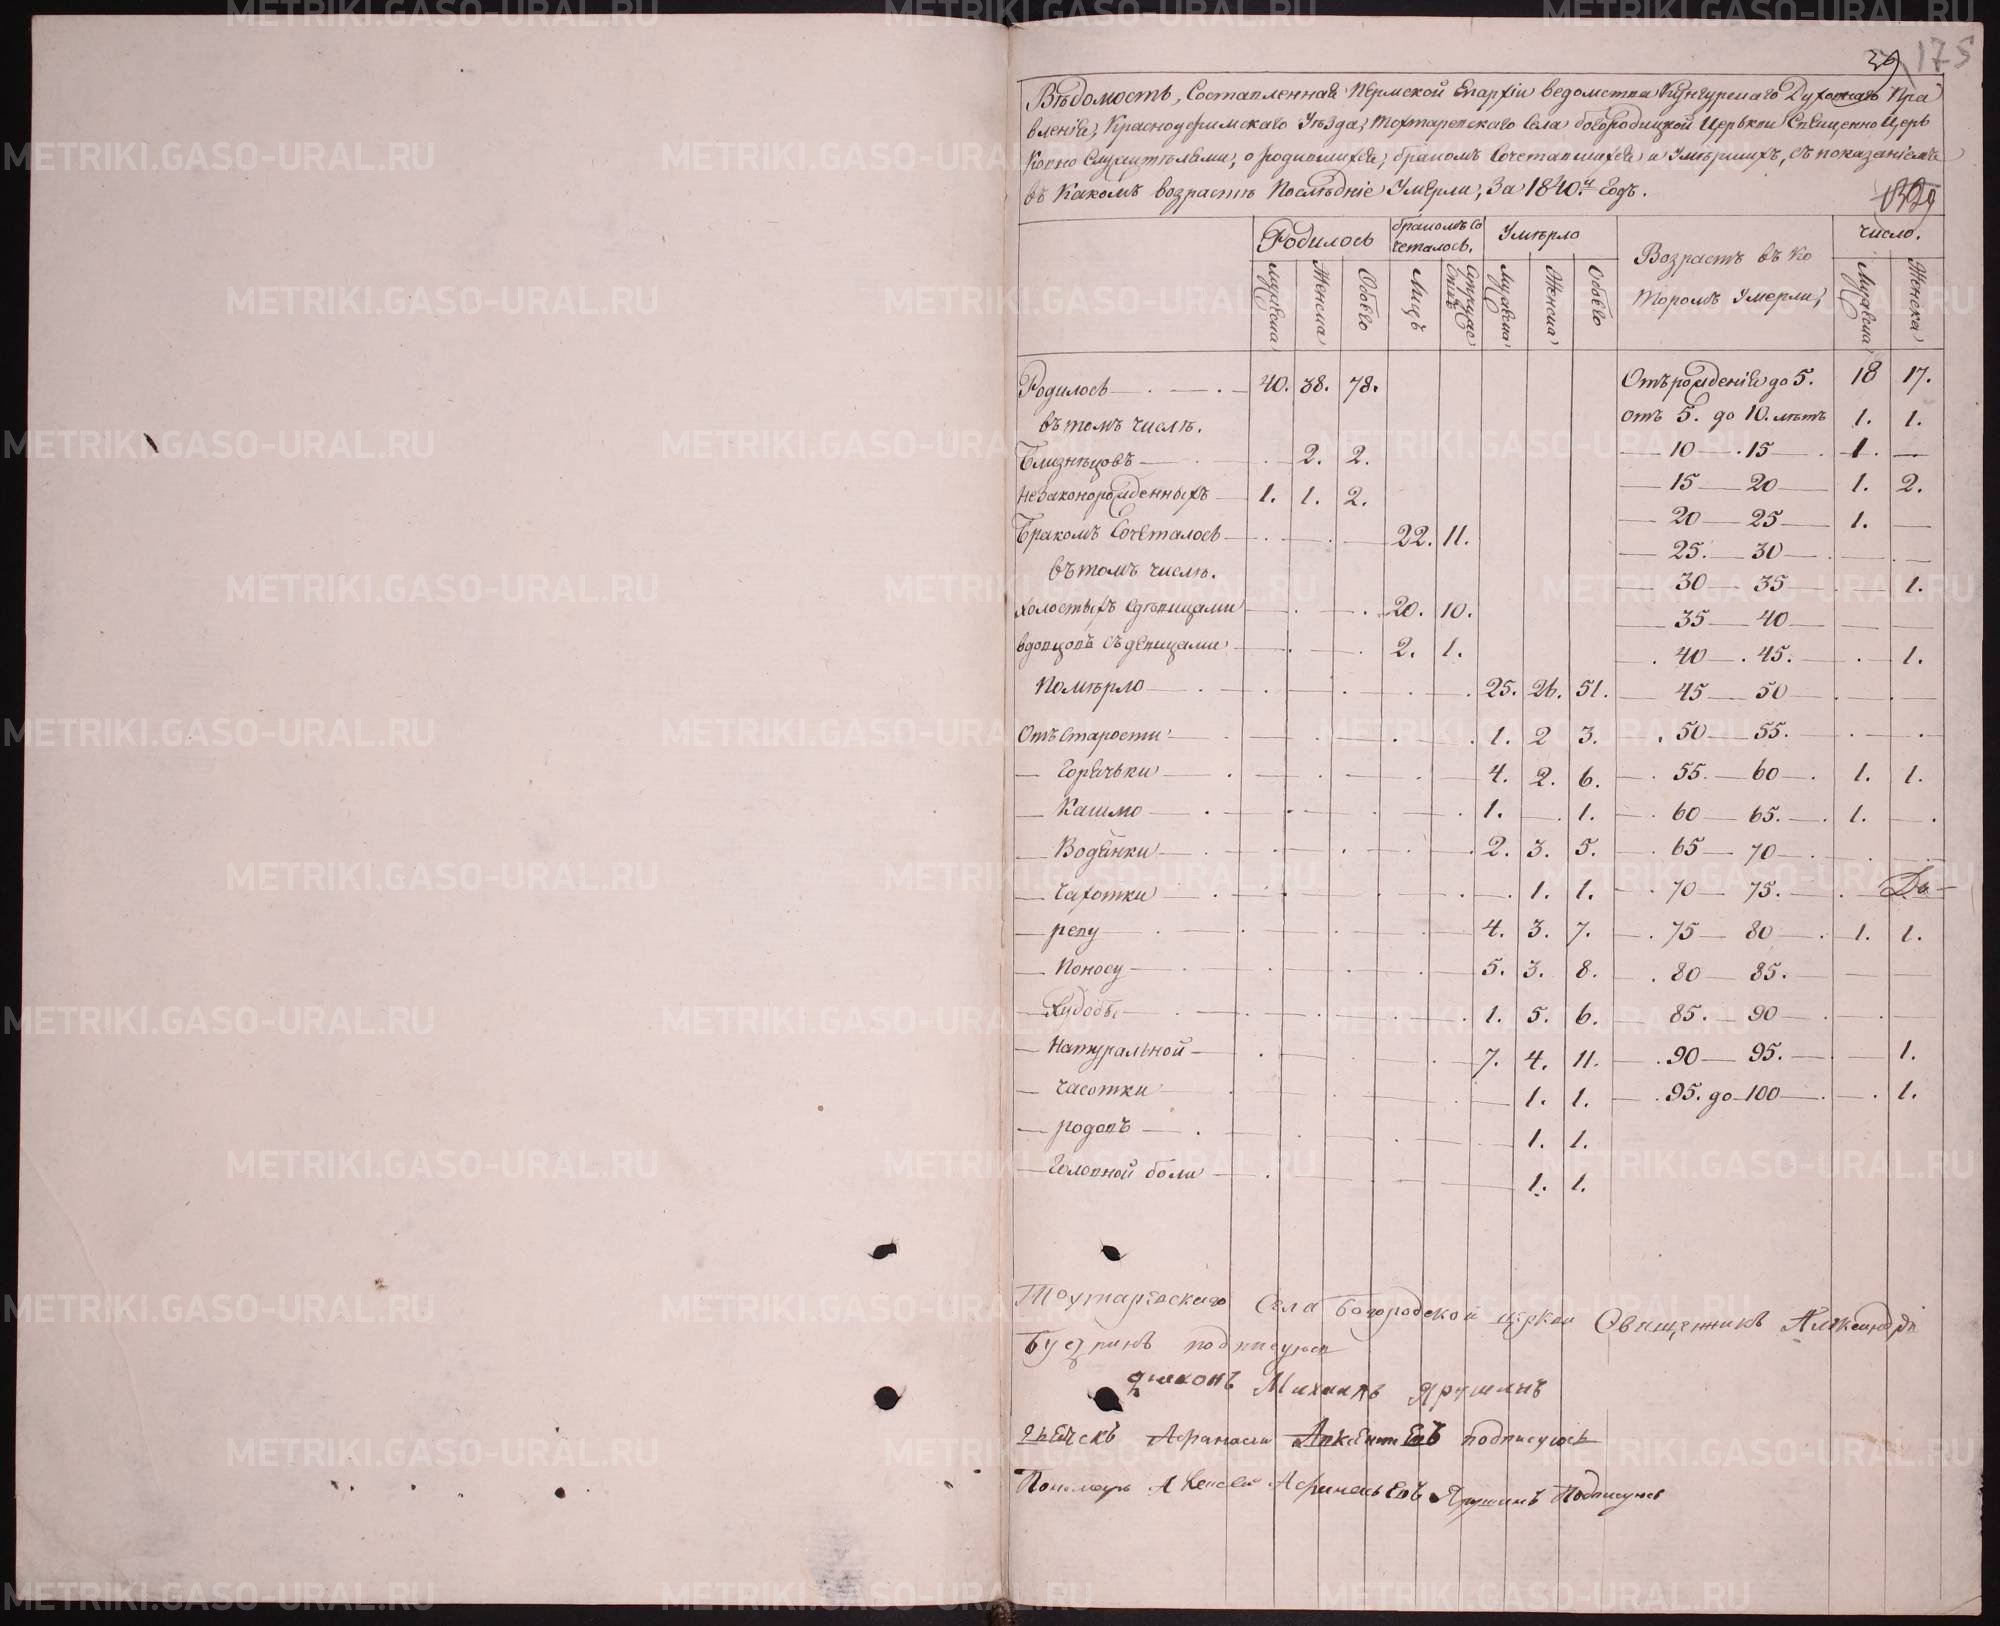 175
Вѣдомость, Составленная Пермской Епархіи ведомства Кунгурскаго Духовнаго Пра
вленія, Красноуфимскаго Уѣзда, Тохтаревскаго Села богородицкой Церькви Священно Церь
ковно Служителями, о родившихся, бракомъ Сочетавшихся и Умѣршихъ, съ показаніемъ
въ какомъ возрастѣ Послѣдніе Умерли, За 1840.й Годъ.
Родилось
бракомъ Со
четалось.
Умѣрло
Возрастъ въ ко
торомъ Умерли,
число.
Мужеска Женска Обоего Лицъ Супруже
ствъ Мужеска Женска Обоего Мужеска Женска
Родилось 40. 38. 78. Отъ рожденія до 5. 18 17.
въ томъ числѣ. отъ 5. до 10. лѣтъ 1. 1.
Близнѣцовъ 2. 2. 10 15 1.
Незаконорожденныхъ 1. 1. 2. 15 20 1. 2.
Бракомъ Сочеталось 22. 11. 20 25 1.
въ томъ числѣ. 25. 30
холостыхъ сдѣвицами 20. 10. 30 35 1.
35 40
вдовцовъ съ девицами 2. 1. 40 45. 1.
Помѣрло 25. 26. 51. 45 50
Отъ Старости 1. 2 3. 50 55.
Горячьки 4. 2. 6. 55. 60 1. 1.
Кашлю 1. 1. 60 65. 1.
Водянки 2. 3. 5. 65 70
Чахотки 1. 1. 70 75.
реву 4. 3. 7. 75 80 1. 1.
Поносу 5. 3. 8. 80 85.
Худобы 1. 5. 6. 85. 90
Натуральной 7. 4. 11. 90 95. 1.
Часотки 1. 1. 95. до 100 1.
родовъ 1. 1.
Головной боли 1. 1.
Села Богородской церкви Священникъ Александръ
подписуюсь
Михаилъ Ярушинъ
Афанасій подписуюсь
Пономарь Алексей Ярушинъ Подписуюсь
METRIKI.GASO-URAL.RU